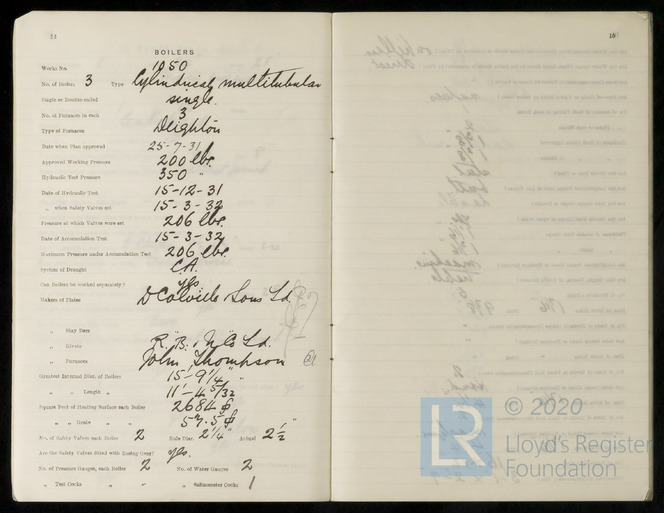 14
BOILERS
Works No. 1050
No. of Boilers 3 Type Cylindrical multitubular
Single or Double-ended single.
No. of Furnaces in each 3
Type of Furnaces Deighton
Date when Plan approved 25-7-31
Approved Working Pressure 200 lbs.
Hydraulic Test Pressure 350 "
Date of Hydraulic Test 15-12-31
" when Safety Valves set 15-3-32
Pressure at which Valves were set 206 lbs.
Date of Accumulation Test 15-3-32
Maximum Pressure under Accumulation Test 206 lbs.
System of Draught
Can Boilers be worked separately? yes
Makers of Plates D Colville Sons Ld.
" Stay Bars
" Rivets R. B. N Co Ld.
" Furnaces John Thompson
Greatest Internal Diar. of Boilers 15'-9 1/4"
" " Length " 11'-4 5/32
Square Feet of Heating Surface each Boiler 2684
" " Grate " 57.5
No. of Safety Valves each Boiler 2 Rule Diar. 2 1/4" Actual 2 1/2"
Are the Safety Valves fitted with Easing Gear? yes.
No. of Pressure Gauges, each Boiler 2 No. of Water Gauges 2
" Test Cocks " " Salinometer Cocks 1
15
© 2020
LR
Lloyd's Register
Foundation